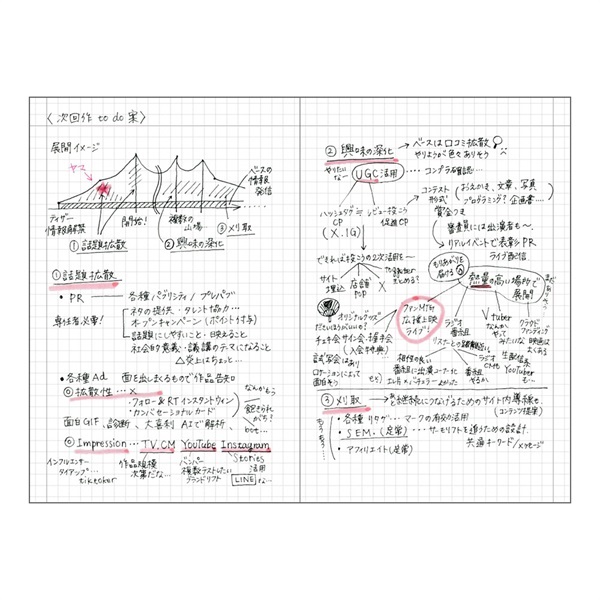 〈次回作 to do 案〉
展開イメージ
ヤマ
ベースの
情報
発信
ティザー
情報解禁
開始!
複数の
山場
③刈取
①話題拡散
②興味の深化
①話題拡散
・PR
各種パブリシティ/プレパブ
専任者必要!
ネタの提供・タレント協力…
オープンキャンペーン(ポイント付与)
話題にしやすいこと・映えること
社会的意義・議論のテーマになること
△炎上はちょっと…
・各種Ad 面を出しまくるもので作品告知
◎拡散性…X
・フォロー&RTインスタントウィン
・カンバセーショナルカード
なんかもう
飽きられ
がち?
面白GIF、診断、大喜利 AIで解析、bot…
◎Impression…TV.CM YouTube Instagram
インフルエンサー
タイアップ…
tiktoker
作品規模
次第だな…
バンパー
複数テストしたい
Stories
活用
LINEな…
②興味の深化
ベースは口コミ拡散
やりようが色々ありそう
やりたい
なー
UGC活用
…コンプラ確認…
ハッシュタグ
CP
(X.IG)
レビュー投こう
促進CP
コンテスト
形式
(おえかき、文章、写真
プログラミング?企画書…)
賞金つき
審査員には出演者も〜
リアルイベントで表彰PR
ライブ配信
できれば投こうの2次活用を〜
サイト
埋込
店舗
POP
X
まとめる?
もりあがりを
届ける
熱量の高い場所で
展開
オリジナルグッズ
ださいほうがいいか?
チェキ会 サイン会・握手会
(入会特典)
試写会はあり
ロケーションによって
面白そう
ファンMTG
広種上映
ライブ!
相性の良い
番組に出演コーナー化
ラジオ
番組
リスナーとの距離近い
ラジオ
CMも
番組
やるか
Vtuber
なんか
やって
みたいな
生配信系
YouTuber
も…
クラウド
ファンディング
映画は
よくある
③刈取
継続につなげるためのサイト内導線も
(コンテンツ提案)
・各種リタゲ…マークの有効活用
・SEM.(定常)…サーモリフトを追うための設計
共通キーワード/メッセージ
・アフィリエイト(定常)
もう
もう…